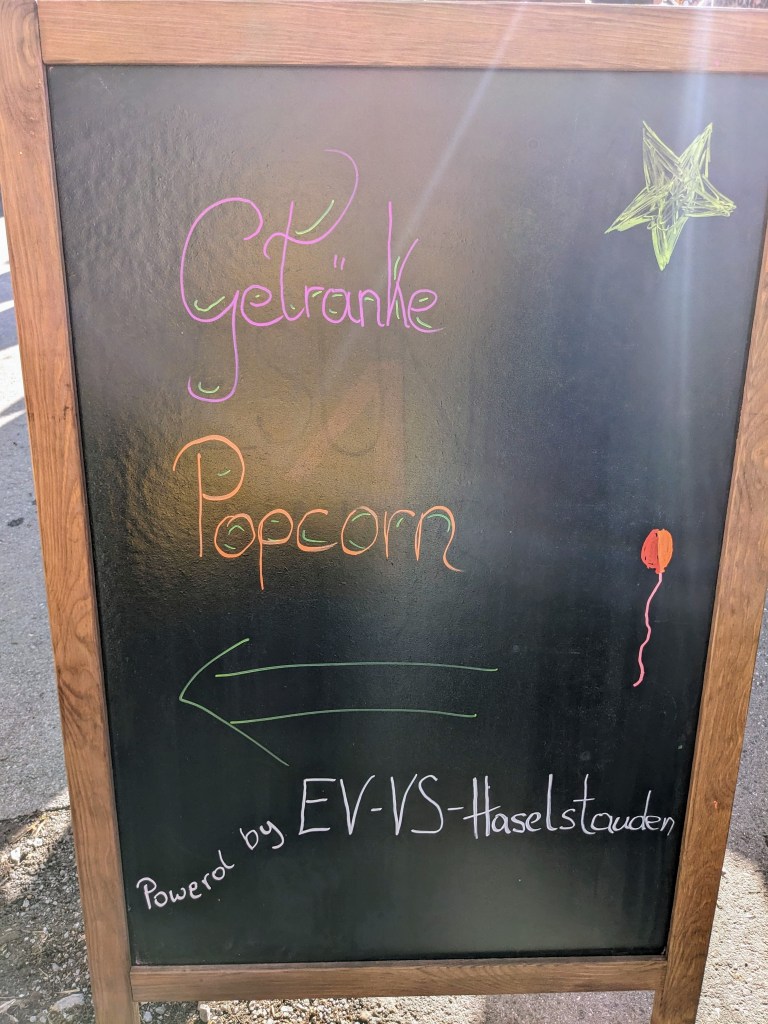 Getränke
Popcorn
Powerd by EV-VS-Haselstauden